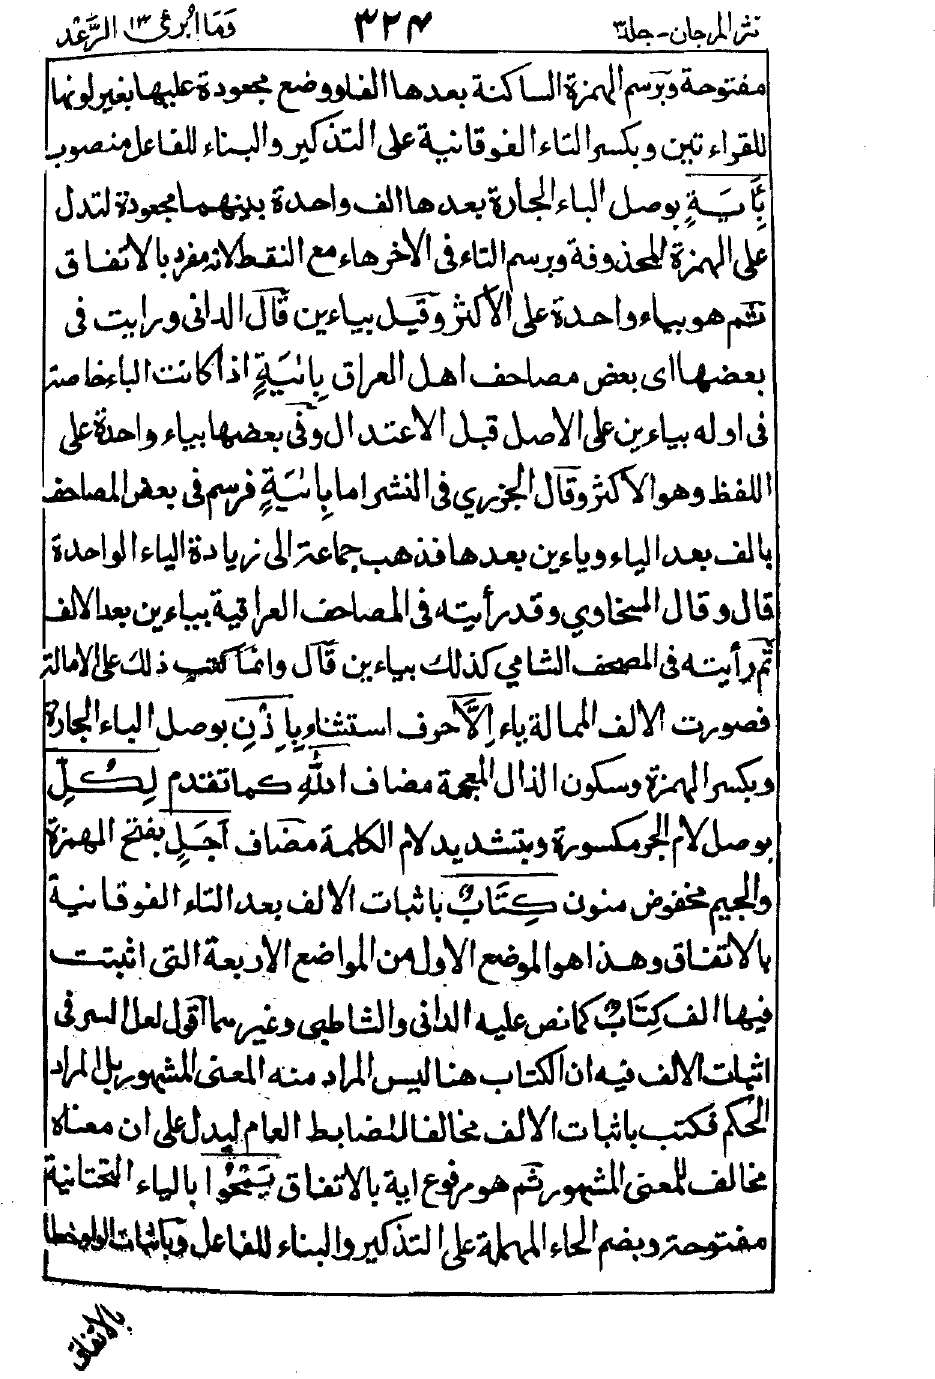 نثر المرجان - جلد ٣ ٣٢٤ وَمَا اُبرئ ١٣ الرَّعْد
مفتوحة وبرسم الهمزة الساكنة بعدها الفا ووضع مجعودة عليها بغير لونها
للقراءتين وبكسر التاء الفوقانية على التذكير والبناء للفاعل منصوب
بِأٰيَةٍ بوصل الباء الجارة بعدها الف واحدة بينهما مجعودة لتدل
على الهمزة المحذوفة وبرسم التاء فى الأخر هاء مع النقط لانه مفرد بالاتفاق
ثم هو بياء واحدة على الأكثر وقيل بياءين قال الدانى ورايت فى
بعضها اى بعض مصاحف اهل العراق بِائيَةٍ اذا كانت الباء خاصة
فى اوله بياءين على الاصل قبل الاعتدال وفى بعضها بياء واحدة على
اللفظ وهو الاكثر وقال الجزري فى النشر اما بِائيَةٍ فرسم فى بعض المصاحف
بالف بعد الياء وياءين بعدها فذهب جماعة الى زيادة الياء الواحدة
قال وقال السخاوي وقد رأيته فى المصاحف العراقية بياءين بعد الالف
ثم رأيته فى المصحف الشامي كذلك بياءين قال وانما كتب ذلك على الامالة
فصورت الالف الممالة ياء اِلَّا حرف استثناء بِاِذْنِ بوصل الباء الجارة
وبكسر الهمزة وسكون الذال المعجمة مضاف اللّٰهِ كما تقدم لِكُلِّ
بوصل لام الجر مكسورة وبتشديد لام الكلمة مضاف اَجَلٍ بفتح الهمزة
والجيم مخفوض منون كِتَابٌ باثبات الالف بعد التاء الفوقانية
بالاتفاق وهذا هو الموضع الاول من المواضع الاربعة التى اثبتت
فيها الف كِتَابٌ كما نص عليه الدانى والشاطبى وغيرهما اقول لعل السر فى
اثبات الالف فيه ان الكتاب هنا ليس المراد منه المعنى المشهور بل المراد
الحكم فكتب باثبات الالف مخالفا للضابط العام ليدل على ان معناه
مخالف للمعنى المشهور ثم هو مرفوع اية بالاتفاق يَمْحُوا بالياء التحتانية
مفتوحة وبضم الحاء المهملة على التذكير والبناء للفاعل وباثبات الواو خطا
بالاتفاق